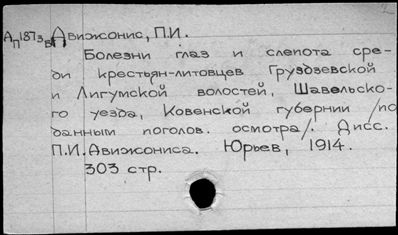 Ап187з Авижонис, П.И.
Болезни глаз и слепота сре-
ди крестьян-литовцев Груздзевской
и Лигумской волостей, Шавельско-
го уезда, Ковенской губернии /по
данным поголов. осмотра/. Дисс.
П.И. Авижониса. Юрьев, 1914.
303 стр.